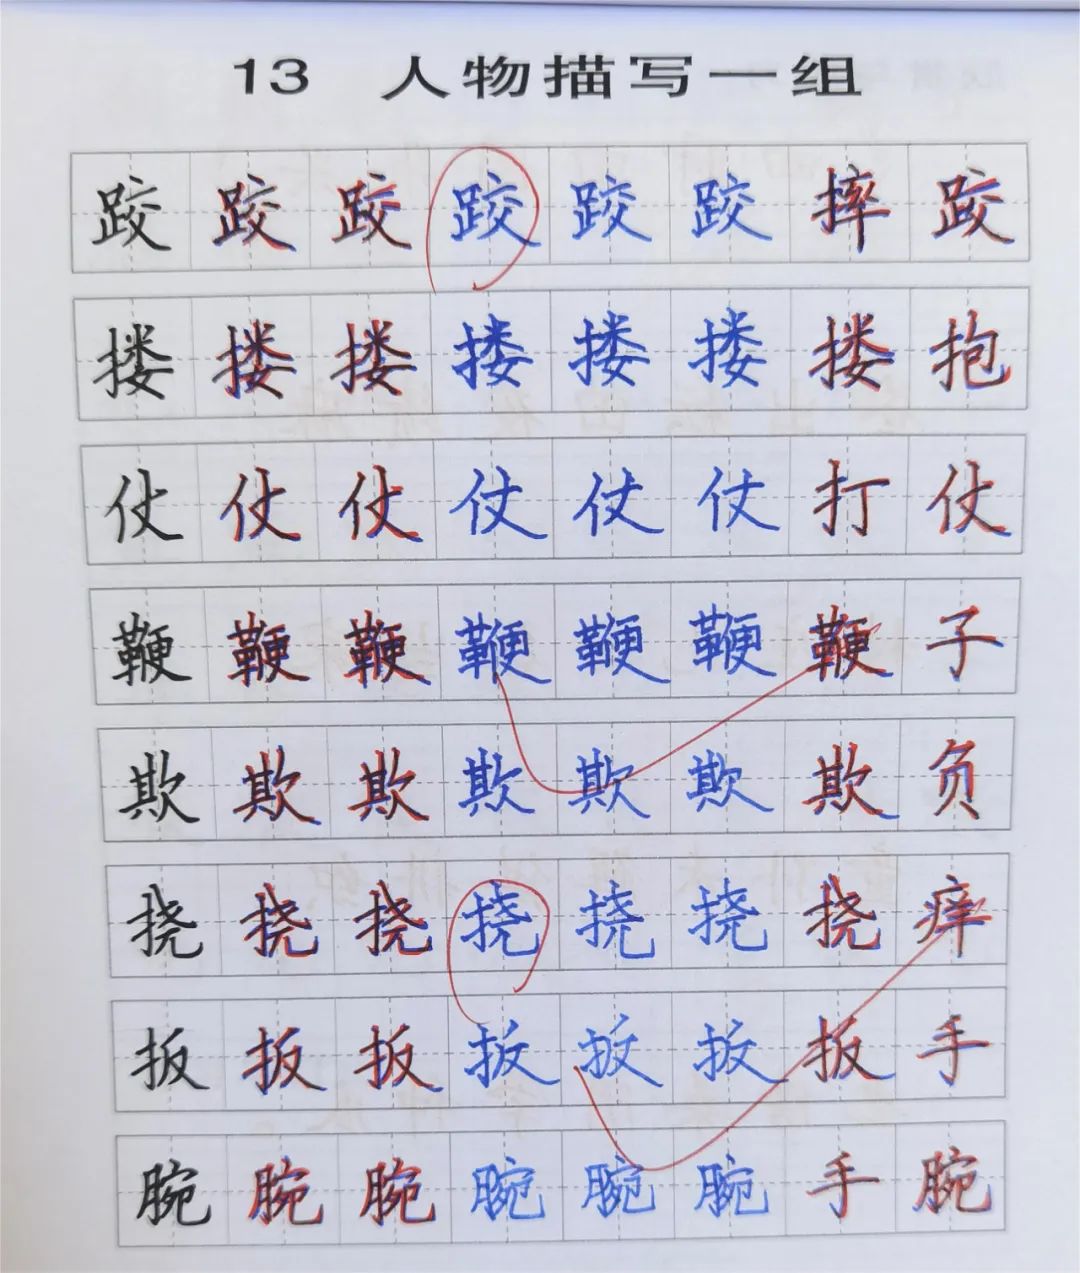 13 人物描写一组
跤跤跤跤跤跤摔跤
搂搂搂搂搂搂搂抱
仗仗仗仗仗仗打仗
鞭鞭鞭鞭鞭鞭鞭子
欺欺欺欺欺欺欺负
挠挠挠挠挠挠挠痒
扳扳扳扳扳扳扳手
腕腕腕腕腕腕手腕